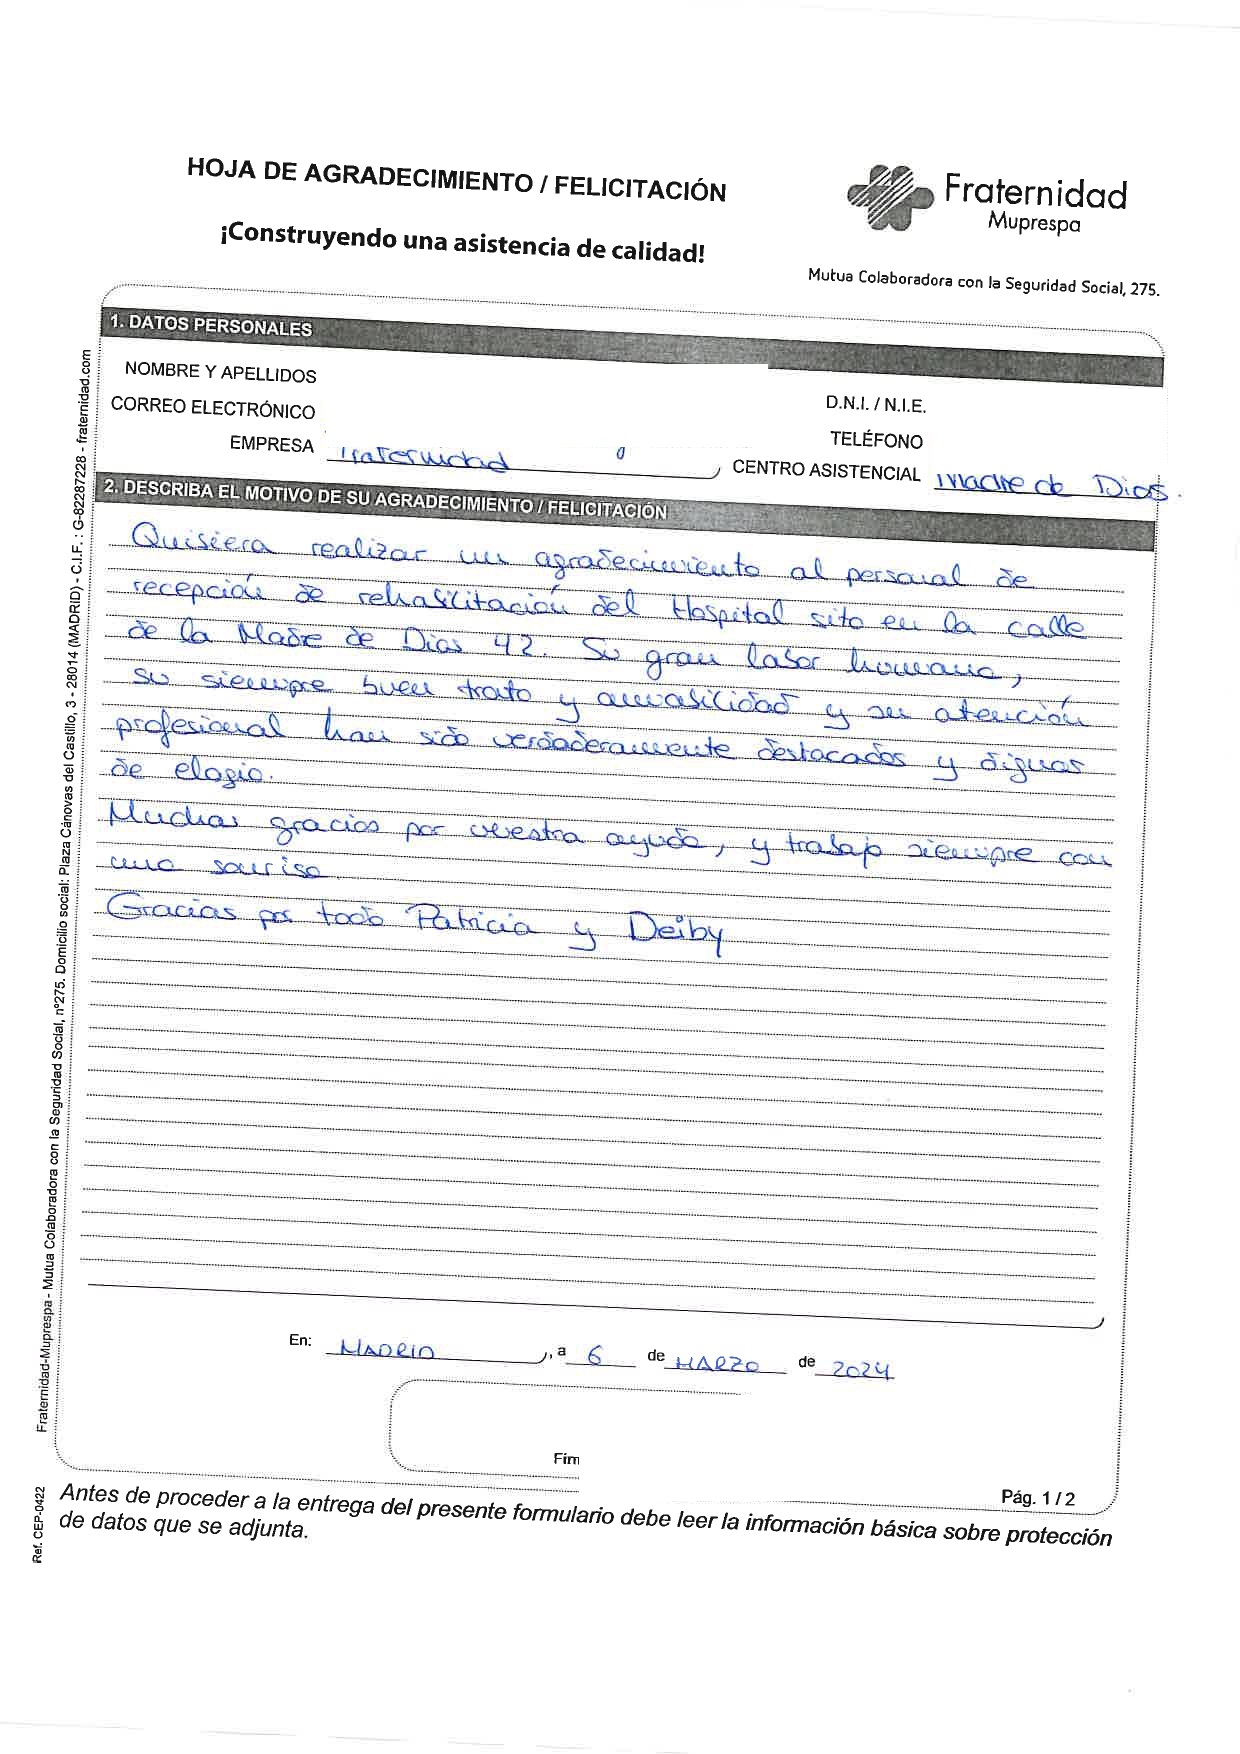 HOJA DE AGRADECIMIENTO / FELICITACIÓN
¡Construyendo una asistencia de calidad!
Fraternidad
Muprespa
Mutua Colaboradora con la Seguridad Social, 275.
1. DATOS PERSONALES
NOMBRE Y APELLIDOS
D.N.I. / N.I.E.
CORREO ELECTRÓNICO
TELÉFONO
EMPRESA Fraternidad
CENTRO ASISTENCIAL Madre de Dios.
2. DESCRIBA EL MOTIVO DE SU AGRADECIMIENTO / FELICITACIÓN
Quisiera realizar un agradecimiento al personal de
recepción de rehabilitación del Hospital sito en la calle
de la Madre de Dios 42. Su gran labor humana,
su siempre buen trato y amabilidad y su atención
profesional han sido verdaderamente destacados y dignos
de elogio.
Muchas gracias por vuestra ayuda, y trabajo siempre con
una sonrisa.
Gracias por todo Patricia y Deiby
En: MADRID, a 6 de MARZO de 2024
Fim
Pág. 1 / 2
Antes de proceder a la entrega del presente formulario debe leer la información básica sobre protección
de datos que se adjunta.
Fraternidad-Muprespa - Mutua Colaboradora con la Seguridad Social, nº275. Domicilio social: Plaza Cánovas del Castillo, 3 - 28014 (MADRID) - C.I.F. : G-82287228 - fraternidad.com
Ref. CEP-0422